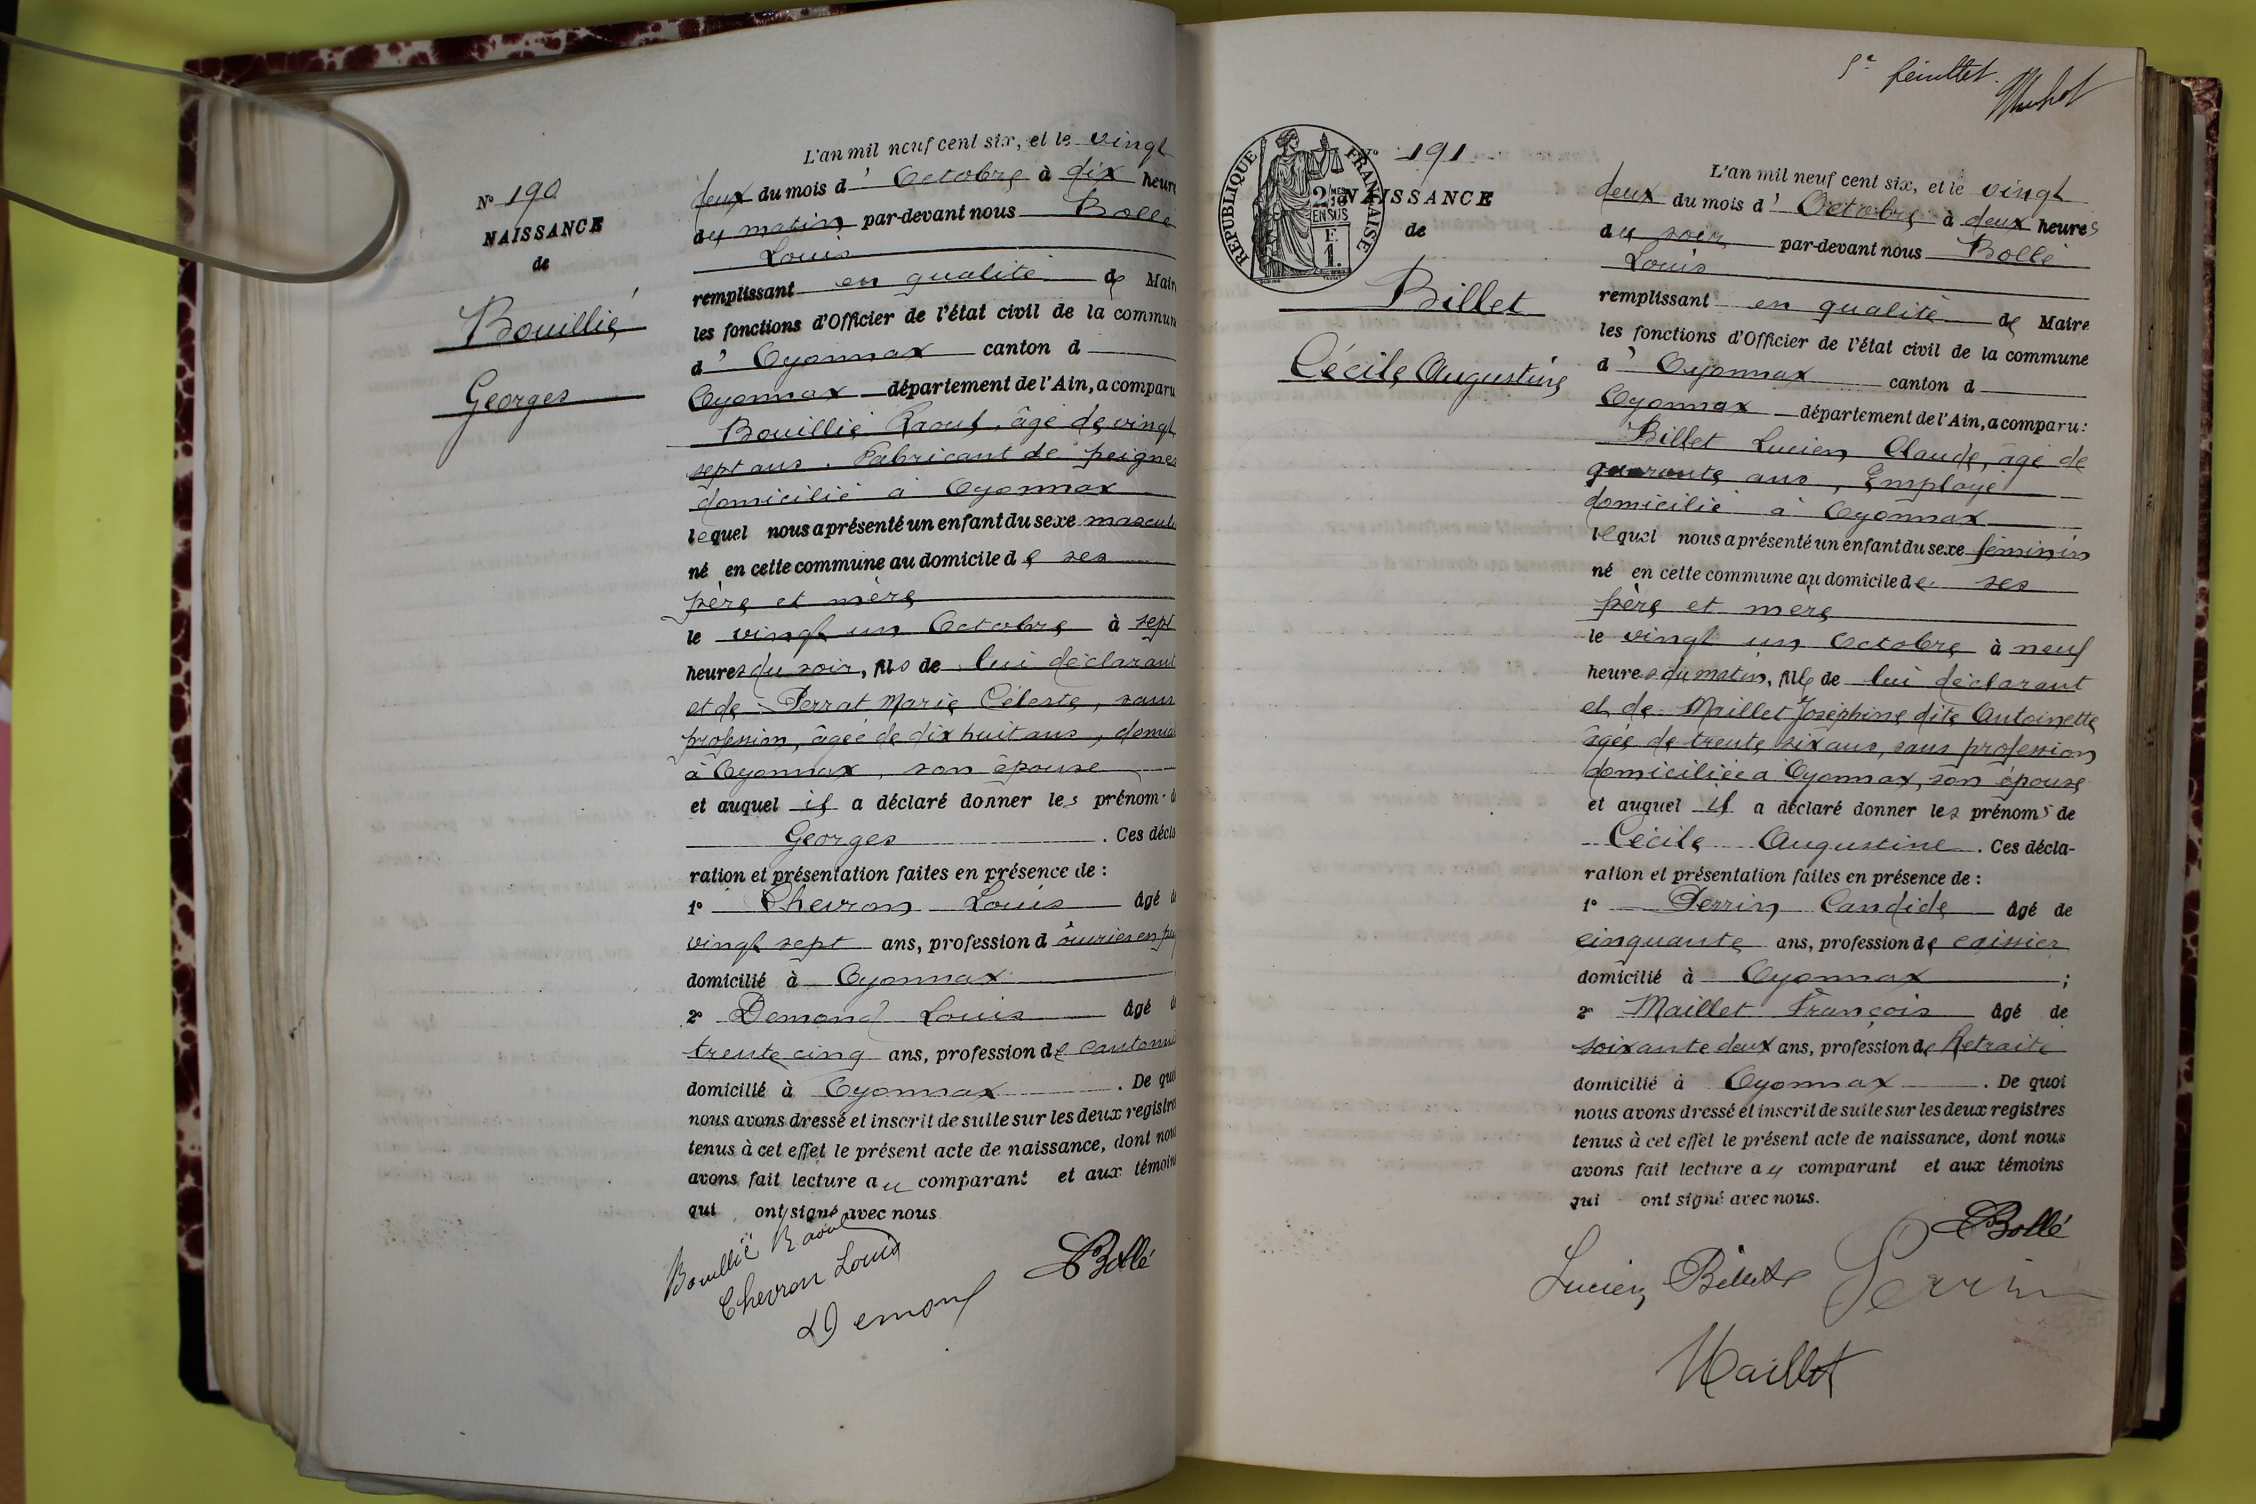 Nº 190
NAISSANCE
de
Bouillié
Georges
L'an mil neuf cent six, et le vingt
deux du mois d' Octobre à dix heure
du matin par-devant nous Bollé
Louis
remplissant en qualité de Mair
les fonctions d'Officier de l'état civil de la commun
d' Oyonnax canton d
Oyonnax département de l'Ain, a comparu
Bouillié Raoul, âgé de vingt
sept ans, Fabricant de peignes
domicilié à Oyonnax
lequel nous a présenté un enfant du sexe masculi
né en cette commune au domicile de ses
père et mère
le vingt un Octobre à sept
heures du soir, fils de lui déclarant
et de Perrat Marie Céleste, sans
profession, âgée de dix huit ans, domici
à Oyonnax, son épouse
et auquel il a déclaré donner les prénom d
Georges . Ces décla
ration et présentation faites en présence de :
1º Chevron Louis âgé d
vingt sept ans, profession d ouvrier en
domicilié à Oyonnax
2º Demond Louis âgé d
trente cinq ans, profession de cantonni
domicilié à Oyonnax . De quoi
nous avons dressé et inscrit de suite sur les deux registre
tenus à cet effet le présent acte de naissance, dont nou
avons fait lecture au comparant et aux témoin
qui ont signé avec nous
Bouillié Raoul
Chevron Louis
Demond
Bollé
5e feuillet.
RÉPUBLIQUE FRANÇAISE
2 MES
EN SUS
Nº 191
NAISSANCE
de
Billet
Cécile Augustine
L'an mil neuf cent six, et le vingt
deux du mois d' Octobre à deux heures
du soir par-devant nous Bollé
Louis
remplissant en qualité de Maire
les fonctions d'Officier de l'état civil de la commune
d' Oyonnax canton d
Oyonnax département de l'Ain, a comparu :
Billet Lucien Claude, âgé de
quarante ans, Employé
domicilié à Oyonnax
lequel nous a présenté un enfant du sexe féminin
né en cette commune au domicile de ses
père et mère
le vingt un Octobre à neuf
heures du matin, fille de lui déclarant
et de Maillet Joséphine dite Antoinette
âgée de trente six ans, sans profession
domiciliée à Oyonnax, son épouse
et auquel il a déclaré donner les prénoms de
Cécile Augustine . Ces décla-
ration et présentation faites en présence de :
1º Perrin Candide âgé de
cinquante ans, profession de caissier
domicilié à Oyonnax ;
2º Maillet François âgé de
soixante deux ans, profession de Retraité
domicilié à Oyonnax . De quoi
nous avons dressé et inscrit de suite sur les deux registres
tenus à cet effet le présent acte de naissance, dont nous
avons fait lecture au comparant et aux témoins
qui ont signé avec nous.
Bollé
Lucien Billet Perrin
Maillet